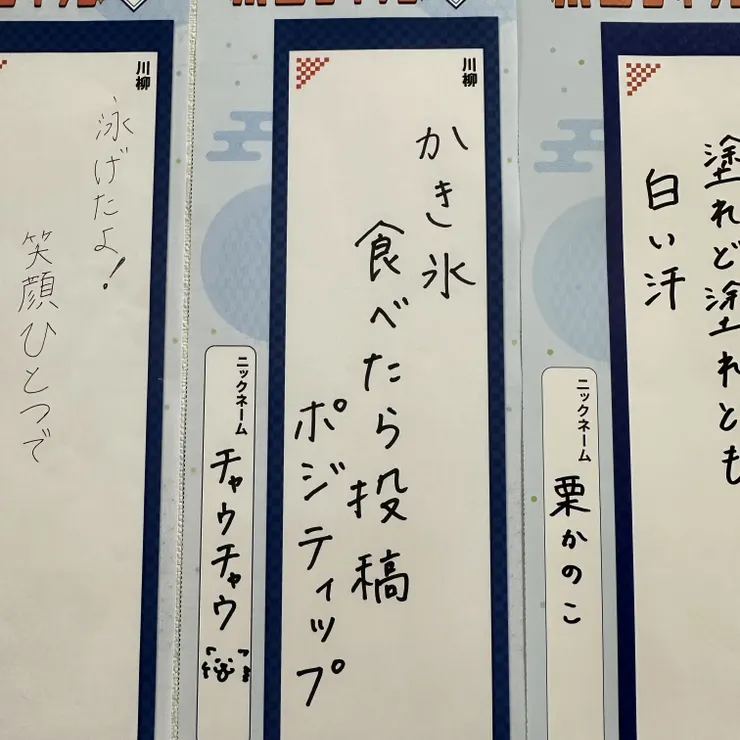 川柳
塗れど塗れども
白い汗
ニックネーム
栗かのこ
川柳
かき氷
食べたら投稿
ポジティップ
ニックネーム
チャウチャウ
川柳
泳げたよ!
笑顔ひとつで